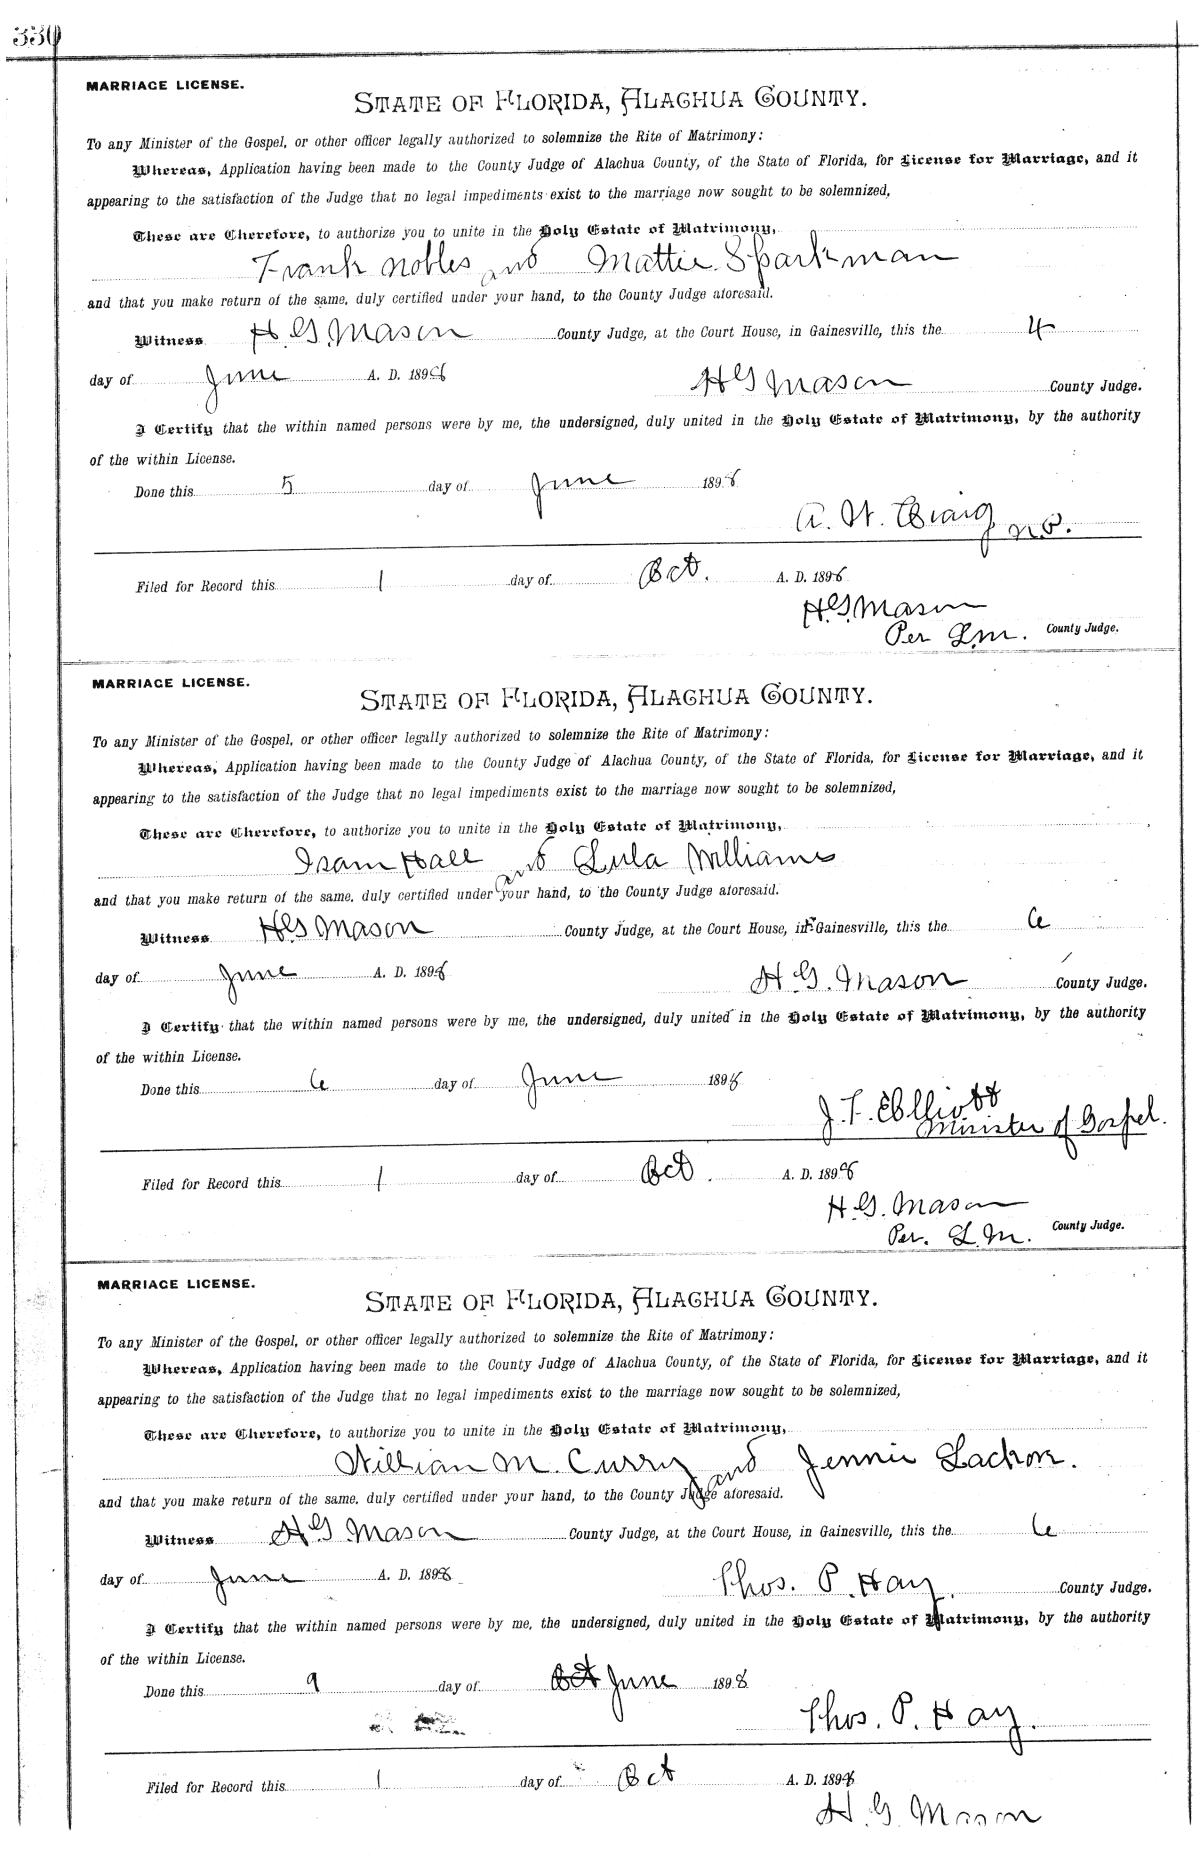 330
MARRIAGE LICENSE.
STATE OF FLORIDA, ALACHUA COUNTY.
To any Minister of the Gospel, or other officer legally authorized to solemnize the Rite of Matrimony:
Whereas, Application having been made to the County Judge of Alachua County, of the State of Florida, for License for Marriage, and it
appearing to the satisfaction of the Judge that no legal impediments exist to the marriage now sought to be solemnized,
These are Therefore, to authorize you to unite in the Holy Estate of Matrimony,
Frank Nobles and Mattie Sparkman
and that you make return of the same, duly certified under your hand, to the County Judge aforesaid.
Witness H. G. Mason County Judge, at the Court House, in Gainesville, this the 4
day of June A. D. 1898
H G Mason County Judge.
I Certify that the within named persons were by me, the undersigned, duly united in the Holy Estate of Matrimony, by the authority
of the within License.
Done this 5 day of June 1898
A. W. Craig N.P.
Filed for Record this 1 day of Oct. A. D. 1898
H. G. Mason
Per L.M. County Judge.
MARRIAGE LICENSE.
STATE OF FLORIDA, ALACHUA COUNTY.
To any Minister of the Gospel, or other officer legally authorized to solemnize the Rite of Matrimony:
Whereas, Application having been made to the County Judge of Alachua County, of the State of Florida, for License for Marriage, and it
appearing to the satisfaction of the Judge that no legal impediments exist to the marriage now sought to be solemnized,
These are Therefore, to authorize you to unite in the Holy Estate of Matrimony,
Isam Hall and Lula Williams
and that you make return of the same, duly certified under your hand, to the County Judge aforesaid.
Witness H G Mason County Judge, at the Court House, in Gainesville, this the 6
day of June A. D. 1898
H. G. Mason County Judge.
I Certify that the within named persons were by me, the undersigned, duly united in the Holy Estate of Matrimony, by the authority
of the within License.
Done this 6 day of June 1898
J. T. Elliott
Minister of Gospel.
Filed for Record this 1 day of Oct. A. D. 1898
H. G. Mason
Per. L. M. County Judge.
MARRIAGE LICENSE.
STATE OF FLORIDA, ALACHUA COUNTY.
To any Minister of the Gospel, or other officer legally authorized to solemnize the Rite of Matrimony:
Whereas, Application having been made to the County Judge of Alachua County, of the State of Florida, for License for Marriage, and it
appearing to the satisfaction of the Judge that no legal impediments exist to the marriage now sought to be solemnized,
These are Therefore, to authorize you to unite in the Holy Estate of Matrimony,
William M. Curry and Jennie
and that you make return of the same, duly certified under your hand, to the County Judge aforesaid.
Witness H G Mason County Judge, at the Court House, in Gainesville, this the 6
day of June A. D. 1898
Thos. P. Hay. County Judge.
I Certify that the within named persons were by me, the undersigned, duly united in the Holy Estate of Matrimony, by the authority
of the within License.
Done this 9 day of Oct June 1898
Thos. P. Hay.
Filed for Record this 1 day of Oct A. D. 1898
H. G. Mason